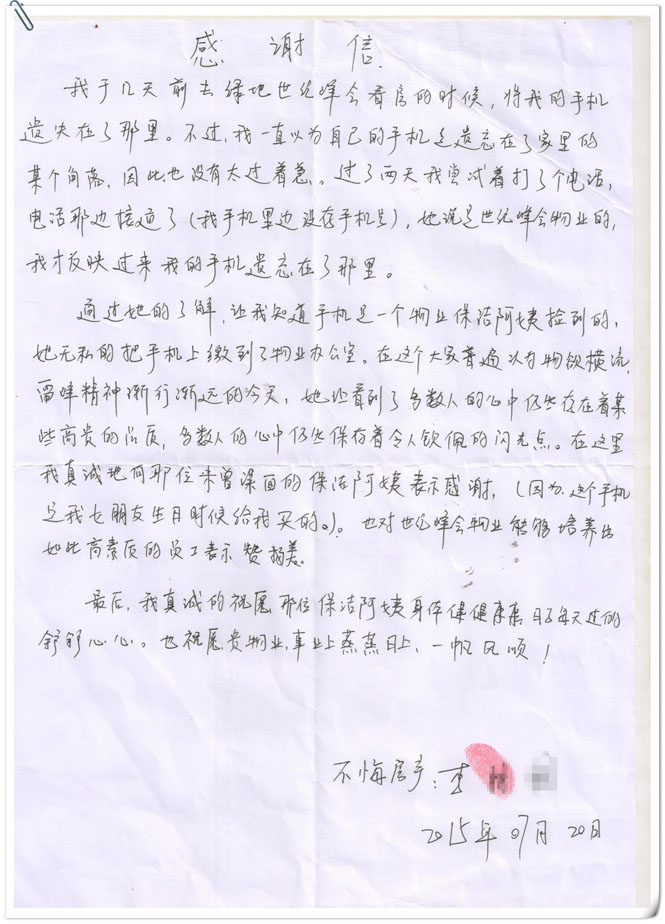 感谢信
我于几天前去绿地世纪峰会看房的时候，将我的手机
遗失在了那里。不过，我一直以为自己的手机是遗忘在了家里的
某个角落，因此也没有太过着急。过了两天我尝试着打了个电话，
电话那边接通了（我手机里边没存手机号），她说是世纪峰会物业的，
我才反映过来我的手机遗忘在了那里。
通过她的了解，让我知道手机是一个物业保洁阿姨捡到的，
她无私的把手机上缴到了物业办公室。在这个大家普遍认为物欲横流，
雷峰精神渐行渐远的今天，她让看到了多数人的心中仍然存在着某
些高贵的品质，多数人的心中仍然保存着令人钦佩的闪光点。在这里
我真诚地向那位未曾谋面的保洁阿姨表示感谢，（因为这个手机
是我女朋友生日时候给我买的。）。也对世纪峰会物业能够培养出
如此高素质的员工表示赞扬美。
最后，我真诚的祝愿那位保洁阿姨身体健健康康日子每天过的
舒舒心心。也祝愿贵物业，事业上蒸蒸日上，一帆风顺！
不悔房产：李
2015年07月20日